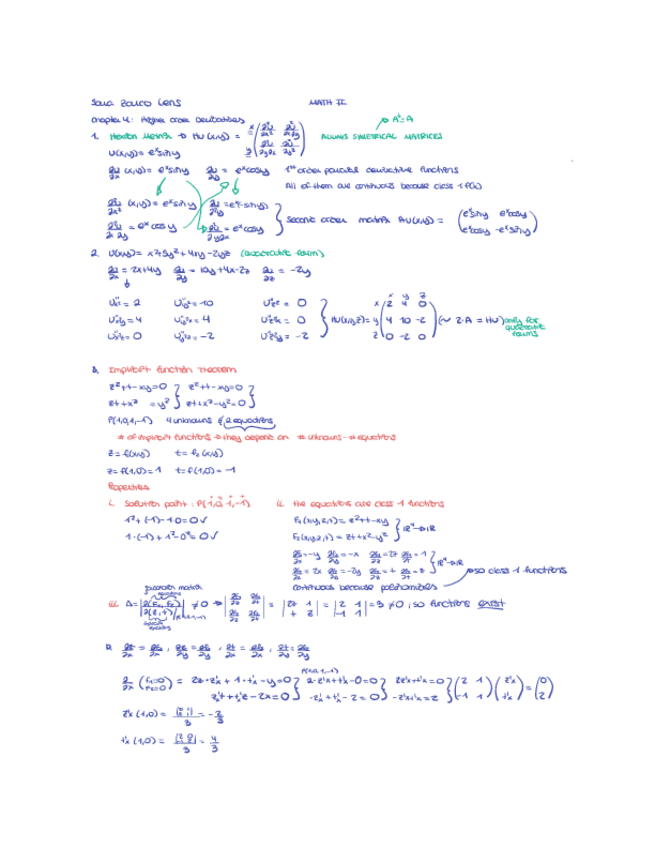 MATH II
Chapter 4: Higher order derivatives
A^t=A
1. Hessian Matrix → HU(x,y) = (∂²U/∂x² ∂²U/∂x∂y ; ∂²U/∂y∂x ∂²U/∂y²) ALWAYS SIMETRICAL MATRICES
U(x,y)= e^x siny
∂U/∂x (x,y)= e^x siny ∂U/∂y = e^x cosy 1st order partial derivative functions
All of them are continuous because class 1
∂²U/∂x² (x,y)= e^x siny ∂²U/∂²y = e^x(-siny)
∂²U/∂x∂y = e^x cosy ∂²U/∂y∂x = e^x cosy } second order matrix HU(x,y)= (e^x siny e^x cosy ; e^x cosy -e^x siny)
2. U(x,y)= x²+5y²+4xy-2yz (quadratic form)
∂U/∂x = 2x+4y ∂U/∂y = 10y+4x-2z ∂U/∂z = -2y
U''x² = 2 U''y² = 10 U''z² = 0
U''xy = 4 U''yx = 4 U''zx = 0 } HU(x,y,z)= (2 4 0 ; 4 10 -2 ; 0 -2 0) (~ 2·A = HU) only for quadratic forms
U''xz = 0 U''yz = -2 U''zy = -2
Implicit function Theorem
z²+t-xy=0 } z²+t-xy=0 }
zt+x² = y² } zt+x²-y²=0 }
P(1,0,1,-1) 4 unknowns & 2 equations
# of implicit functions → they depend on # unknowns - # equations
z= f₁(x,y) t= f₂(x,y)
z= f(1,0)= 1 t= f(1,0)= -1
Properties
i. Solution point: P(1,0,1,-1) ii. the equations are class 1 functions
1²+(-1)-1·0=0✓ F₁(x,y,z,t)= z²+t-xy
1·(-1)+1²-0²=0✓ F₂(x,y,z,t)= zt+x²-y² } ℝ⁴→ℝ
∂F₁/∂x=-y ∂F₁/∂y=-x ∂F₁/∂z=2z ∂F₁/∂t=1
∂F₂/∂x=2x ∂F₂/∂y=-2y ∂F₂/∂z=t ∂F₂/∂t=z } ℝ⁴→ℝ → so class 1 functions
continuous because polinomials
jacobian matrix
iii. Δ= |∂(F₁,F₂)/∂(z,t)| ≠0 → |∂F₁/∂z ∂F₁/∂t ; ∂F₂/∂z ∂F₂/∂t| = |2z 1 ; t z| = |2 1 ; -1 1| = 3 ≠0, so functions exist
∂/∂x (F₁=0 ; F₂=0) = 2z·z'x + 1·t'x - y=0 } P(1,0,1,-1) 2·z'x+t'x-0=0 } 2z'x+t'x=0 } (2 1 ; -1 1) (z'x ; t'x) = (0 ; 2)
z'x (1,0) = = -2/3
t'x (1,0) = = 4/3